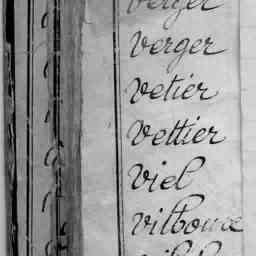 verger
verger
vetier
vettier
viel
vilboure